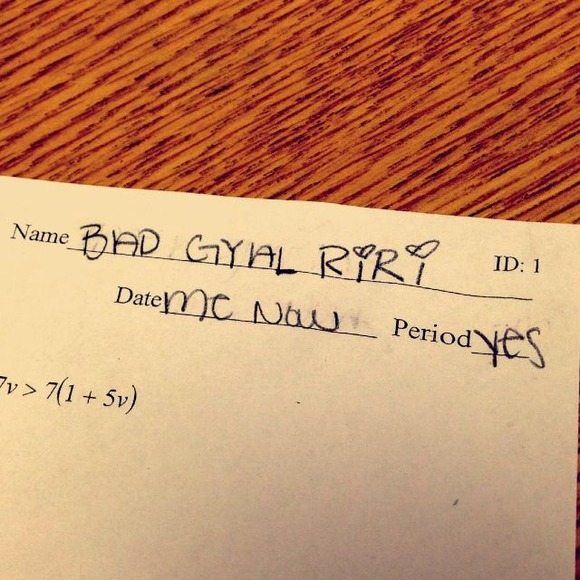 Name BAD GYAL RiRi ID: 1
Date mc Nau Period yes
7v > 7(1 + 5v)